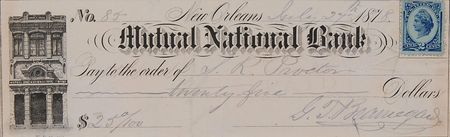 No. 85 New Orleans, July 27th 1878
Mutual National Bank
Pay to the order of S. R. Proctor
twenty five Dollars
$ 25 0/100